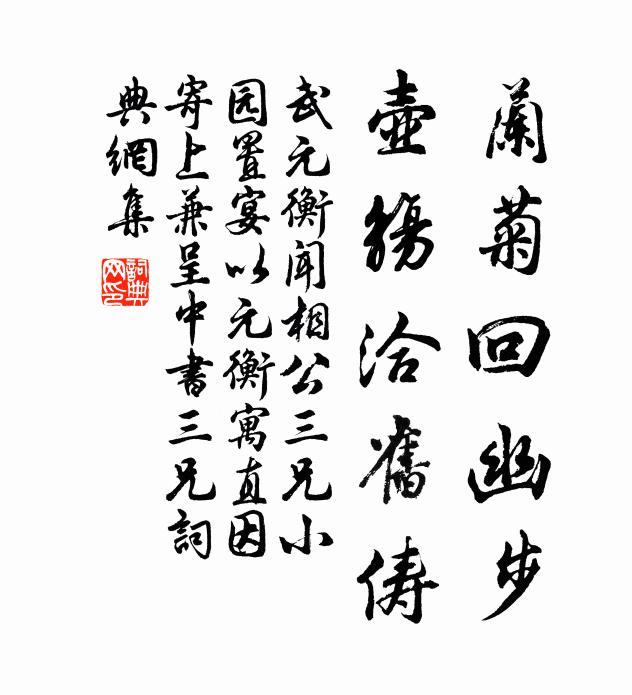 蘭菊回幽步
壺觴洽舊儔
武元衡聞相公三兄小
园置宴以元衡寓直因
寄上兼呈中書三兄詞
典網集
詞典
网印